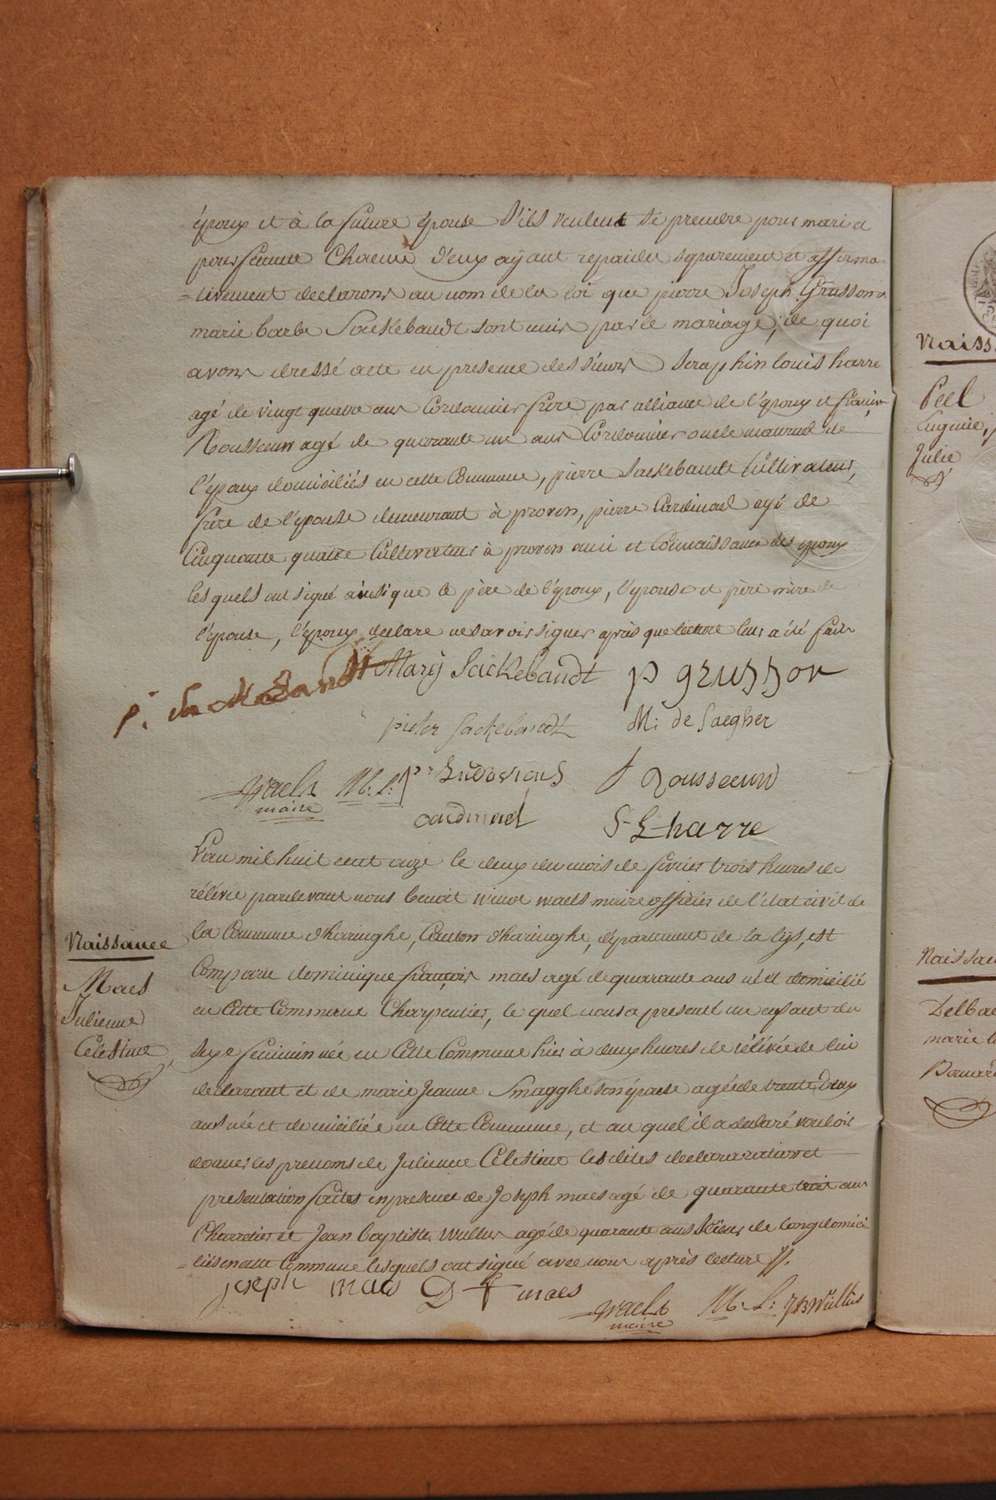 époux et à la future épouse s'ils veulent se prendre pour mari et
pour femme Chacun d'eux ayant repondu separement et affirma
=tivement declarons au nom de la loi que pierre Joseph Grusson et
marie barbe Sackebandt sont unis par le mariage, de quoi
avons dressé acte en presence des sieurs Seraphin Louis harre
agé de vingt quatre ans Cordonnier frère par alliance de l'époux et françois
Rousseeuw agé de quarante un ans Cordonnier oncle maternel de
l'époux domiciliés en cette Commune, pierre Sackebandt Cultivateur,
frère de l'épouse demeurant à proven, pierre Cardinael agé de
Cinquante quatre Cultivateur à proven ami et Connaissance des époux
lesquels ont signé ainsi que le père de l'époux, l'épouse et père mère de
l'épouse, l'époux declare ne savoir signer après que lecture leur a été faite
Marÿ Sackebandt p grusson
pieter Sackebandt M: de Saegher
Waels M. L: p:r Ludovicus f Rousseeuw
maire Cardinael S-L-harre
L'an mil huit cent onze le deux du mois de fevrier trois heures de
rélévée pardevant nous benoit winoc waels maire officier de l'état civil de
la Commune d'haringhe, Canton d'haringhe, département de la lijs, est
Comparu dominique françois maes agé de quarante ans né et domicilié
en Cette Commune Charpentier, le quel nous a presenté un enfant du
Sexe feminin née en Cette Commune hier à deux heures de rélévée de lui
declarant et de marie Jeanne Smagghe son épouse agée de trente deux
ans née et domiciliée en Cette Commune, et au quel il a declaré vouloir
donner les prenoms de Julienne Célestine les dites declaration et
presentation faites en presence de Joseph maes agé de quarante trois ans
Charretier et Jean baptiste Wullus agé de quarante ans Scieur de long domici
=liés en cette Commune lesquels ont signé avec nous après lecture
joseph maes D f maes
Waels M. L: JB Wullus
maire
Naissance
Maes
Julienne
Célestine
Naiss
Peel
Eugenie,
Julie
Naissa
Delba
marie